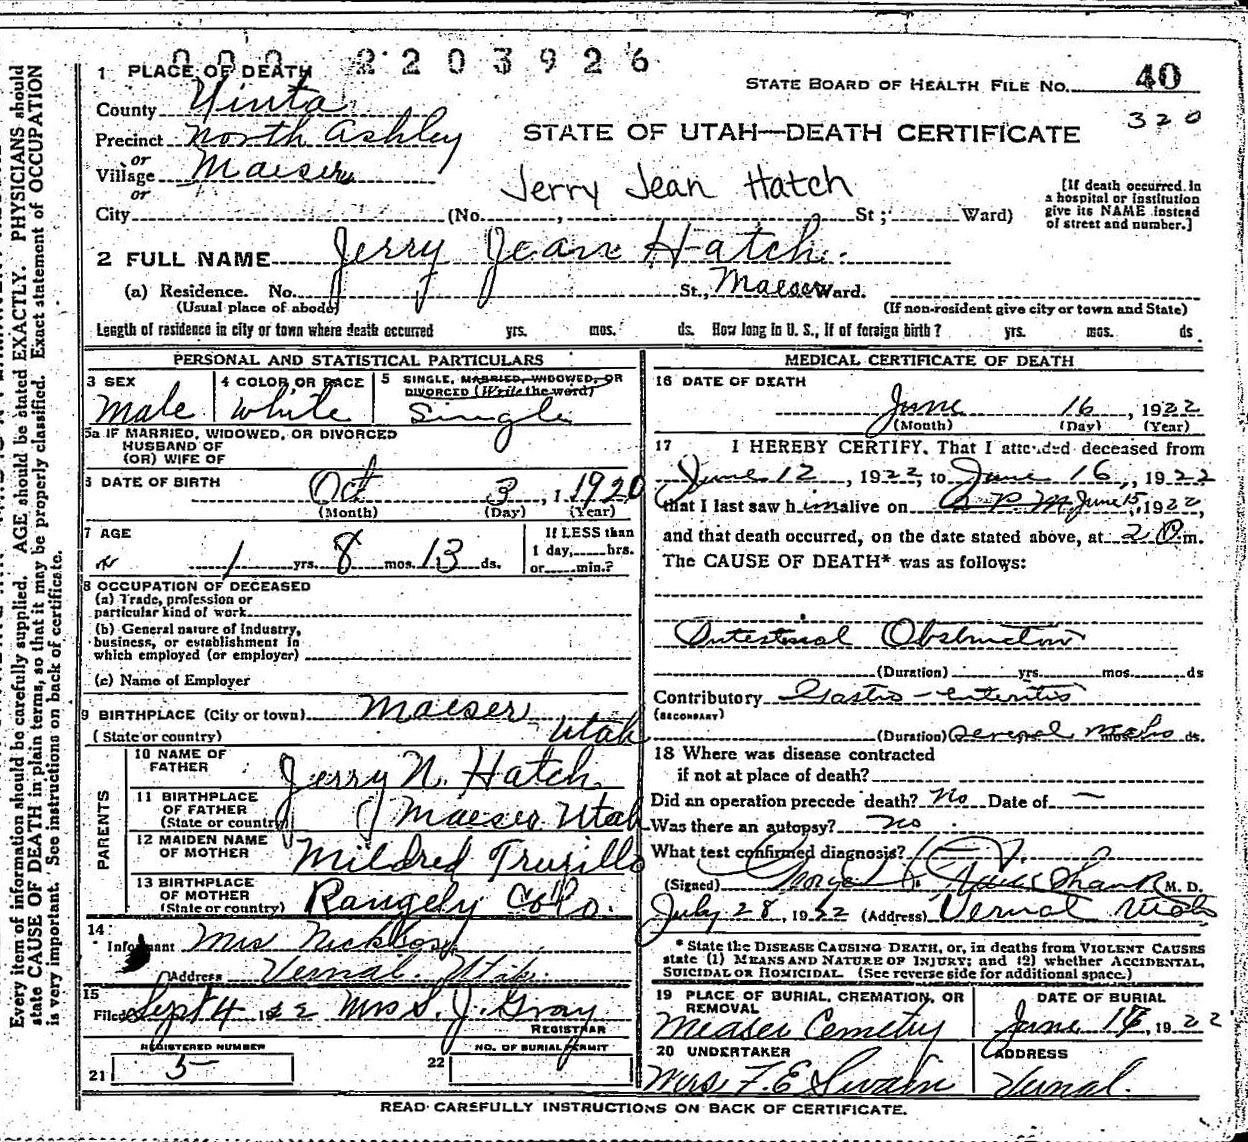 000 2203926
1 PLACE OF DEATH
STATE BOARD OF HEALTH FILE NO. 40
County Uinta
320
Precinct North Ashley
STATE OF UTAH—DEATH CERTIFICATE
or
Village Maeser
or
Jerry Jean Hatch
[If death occurred in a hospital or institution give its NAME instead of street and number.]
City (No. , St ; Ward)
2 FULL NAME Jerry Jean Hatch.
(a) Residence. No. St., Maeser Ward.
(Usual place of abode) (If non-resident give city or town and State)
Length of residence in city or town where death occurred yrs. mos. ds. How long in U. S., if of foreign birth? yrs. mos. ds.
PERSONAL AND STATISTICAL PARTICULARS
3 SEX Male
4 COLOR OR RACE White
5 SINGLE, MARRIED, WIDOWED, OR DIVORCED (Write the word) Single
5a IF MARRIED, WIDOWED, OR DIVORCED
HUSBAND OF
(OR) WIFE OF
6 DATE OF BIRTH Oct 3, 1 1920
(Month) (Day) (Year)
7 AGE
1 yrs. 8 mos. 13 ds.
If LESS than
1 day, hrs.
or min.?
8 OCCUPATION OF DECEASED
(a) Trade, profession or
particular kind of work
(b) General nature of industry,
business, or establishment in
which employed (or employer)
(c) Name of Employer
9 BIRTHPLACE (City or town) Maeser
(State or country) Utah
PARENTS
10 NAME OF FATHER Jerry N. Hatch
11 BIRTHPLACE OF FATHER (State or country) Maeser Utah
12 MAIDEN NAME OF MOTHER Mildred Trujillo
13 BIRTHPLACE OF MOTHER (State or country) Rangely Colo.
14 Informant Mrs
Address Vernal. Utah.
15 Filed Sept 4 1922 Mrs S. J. Gray
REGISTRAR
REGISTERED NUMBER
21 5
NO. OF BURIAL PERMIT
22
MEDICAL CERTIFICATE OF DEATH
16 DATE OF DEATH
June 16, 1922
(Month) (Day) (Year)
17 I HEREBY CERTIFY, That I attended deceased from
June 12, 1922, to June 16, 1922
that I last saw him alive on 2 P M. June 15, 1922,
and that death occurred, on the date stated above, at 2 m.
The CAUSE OF DEATH* was as follows:
Intestinal Obstruction
(Duration) yrs. mos. ds
Contributory Gastro-enteritis
(SECONDARY)
(Duration) several mos. ds.
18 Where was disease contracted
if not at place of death?
Did an operation precede death? No Date of —
Was there an autopsy? no
What test confirmed diagnosis?
(Signed) M. D.
July 28, 1922 (Address) Vernal Utah
* State the DISEASE CAUSING DEATH, or, in deaths from VIOLENT CAUSES
state (1) MEANS AND NATURE OF INJURY; and (2) whether ACCIDENTAL,
SUICIDAL OR HOMICIDAL. (See reverse side for additional space.)
19 PLACE OF BURIAL, CREMATION, OR REMOVAL
Measer Cemetry
DATE OF BURIAL
June 1922
20 UNDERTAKER
Mrs F. E Swain
ADDRESS
Vernal.
READ CAREFULLY INSTRUCTIONS ON BACK OF CERTIFICATE.
Every item of information should be carefully supplied. AGE should be stated EXACTLY. PHYSICIANS should
state CAUSE OF DEATH in plain terms, so that it may be properly classified. Exact statement of OCCUPATION
is very important. See instructions on back of certificate.